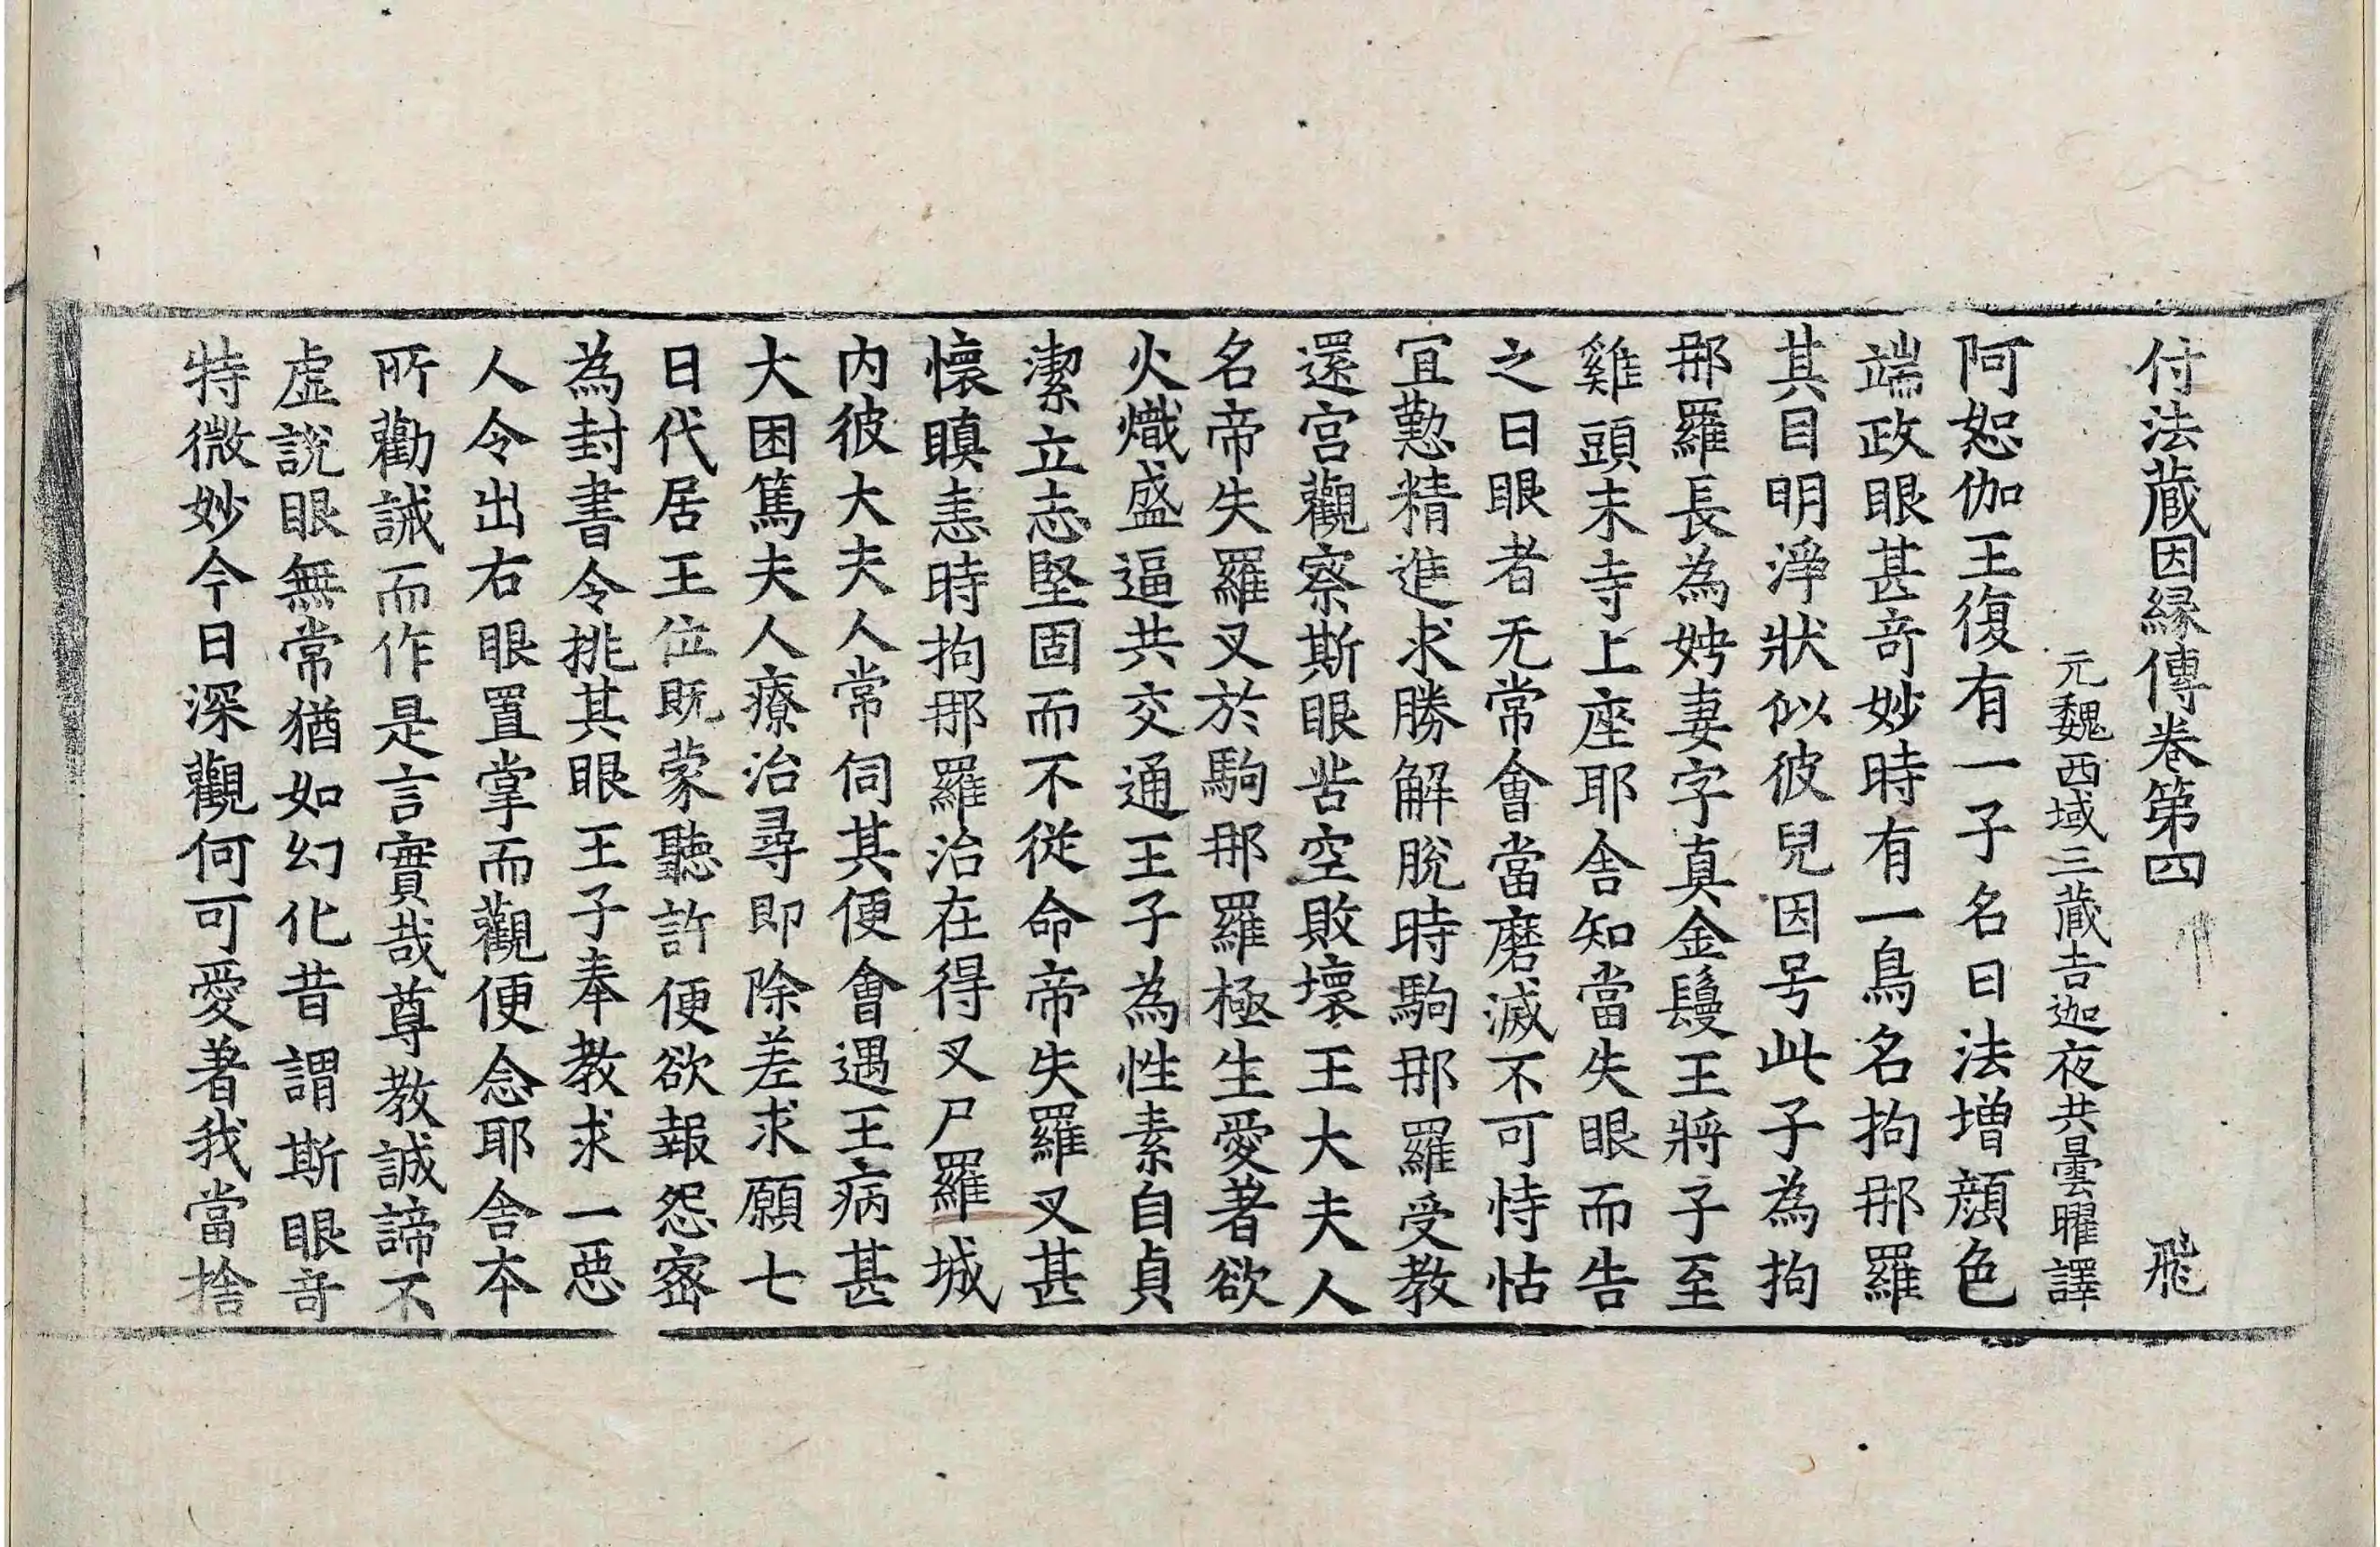 付法蔵因縁傳卷第四 飛
元魏西域三蔵吉迦夜共曇曜譯
阿恕伽王復有一子名曰法增顔色
端政眼甚竒妙時有一鳥名拘那羅
其目明淨狀似彼兒因号此子為拘
那羅長為娉妻字真金鬘王將子至
雞頭末寺上座耶舍知當失眼而告
之曰眼者无常會當磨滅不可恃怙
宜懃精進求勝解脫時駒那羅受教
還宮觀察斯眼苦空敗壞王大夫人
名帝失羅叉於駒那羅極生愛著欲
火熾盛逼共交通王子為性素自貞
潔立志堅固而不從命帝失羅叉甚
懷瞋恚時拘那羅治在得叉尸羅城
內彼大夫人常伺其便會遇王病甚
大困篤夫人療治尋即除差求願七
日代居王位既蒙聽許便欲報怨宻
為封書令挑其眼王子奉教求一惡
人令出右眼置掌而觀便念耶舍本
所勸誡而作是言實哉尊教誠諦不
虛說眼無常猶如幻化昔謂斯眼竒
特微妙今日深觀何可愛著我當捨